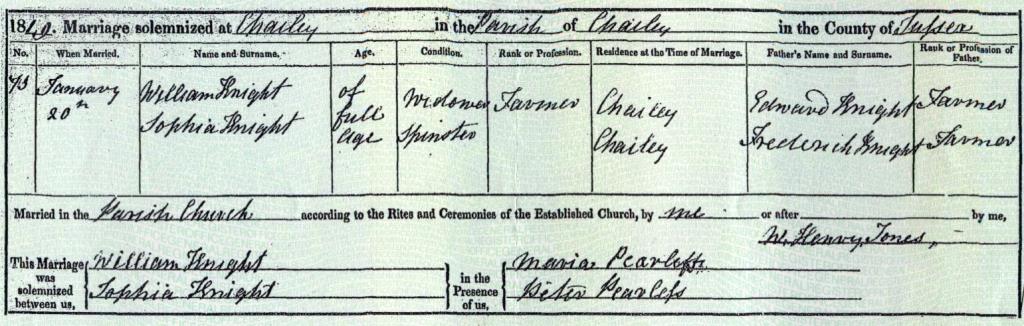 18 Marriage solemnized at Chailey in the Parish of Chailey in the County of Sussex
No. When Married. Name and Surname. Age. Condition. Rank or Profession. Residence at the Time of Marriage. Father's Name and Surname. Rank or Profession of Father.
January 20th William Knight of full age Widower Farmer Chailey Edward Knight Farmer
Sophia Knight Spinster Chailey Frederich Knight Farmer
Married in the Parish Church according to the Rites and Ceremonies of the Established Church, by me or after by me,
W. Henry Jones,
This Marriage was solemnized between us, William Knight in the Presence of us, Maria Pearless
Sophia Knight Peter Pearless